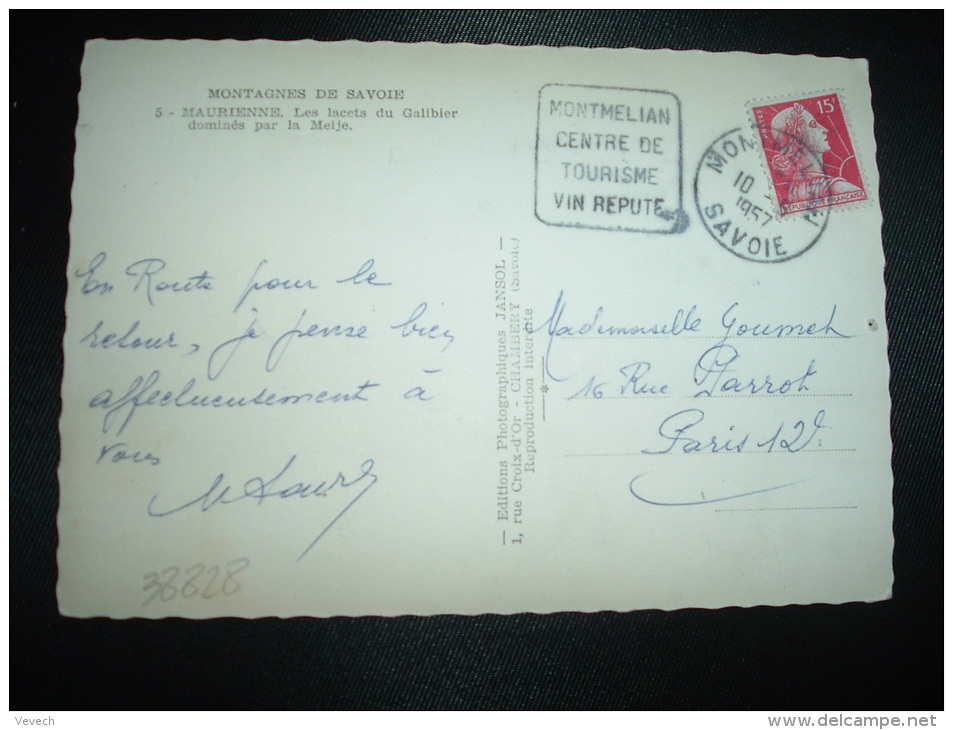 MONTAGNES DE SAVOIE
5 - MAURIENNE. Les lacets du Galibier
dominés par la Meije.
MONTMELIAN
CENTRE DE
TOURISME
VIN REPUTE
15F
POSTES
REPUBLIQUE FRANCAISE
10
1957
SAVOIE
En Route pour le
retour, je pense bien
affectueusement à
vous
38828
— Editions Photographiques JANSOL —
1, rue Croix-d'Or - CHAMBERY (Savoie)
Reproduction interdite
Mademoiselle Goumet
16 Rue Parrot
Paris 12e
Vevech
www.delcampe.net